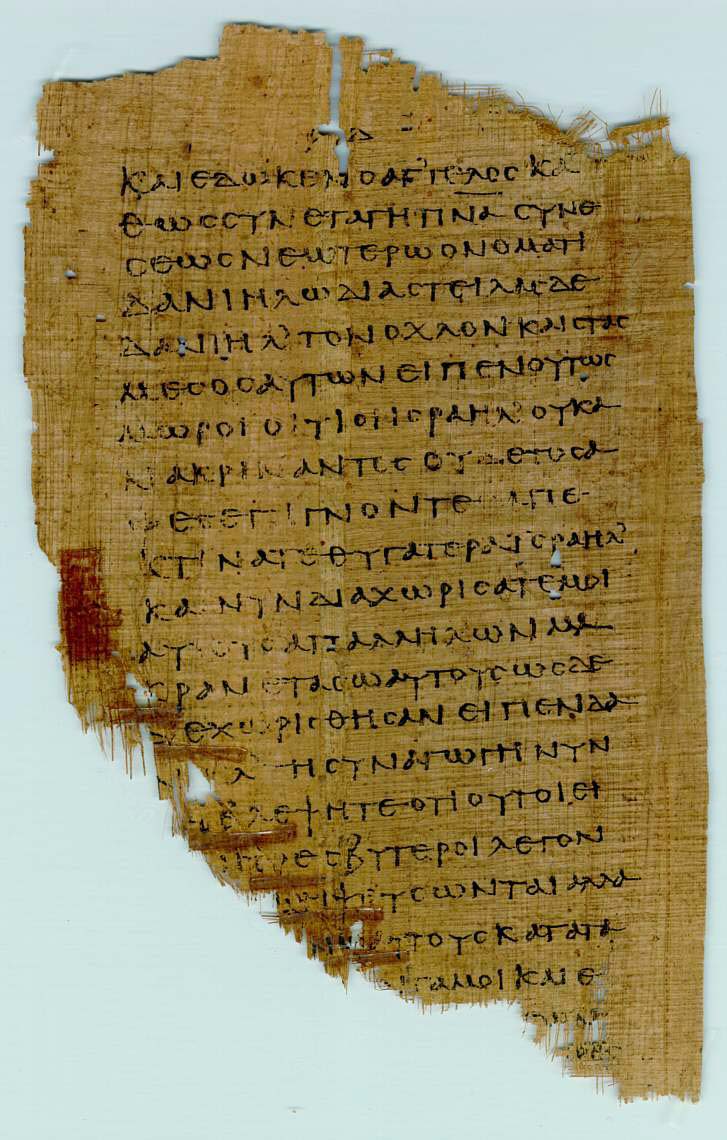 ΚΑΙ ΕΔΩΚΕΝ Ο ΑΓΓΕΛΟΣ ΚΑ
ΘΩΣ ΣΥΝΕΤΑΓΗ ΠΝΑ ΣΥΝΕ
ΣΕΩΣ ΝΕΩΤΕΡΩ ΟΝΟΜΑΤΙ
ΔΑΝΙΗΛ Ω ΔΙΑΣΤΕΙΛΑΣ ΔΕ
ΔΑΝΙΗΛ ΤΟΝ ΟΧΛΟΝ ΚΑΙ ΣΤΑΣ
ΜΕΣΟΣ ΑΥΤΩΝ ΕΙΠΕΝ ΟΥΤΩΣ
ΜΩΡΟΙ ΟΙ ΥΙΟΙ ΙΣΡΑΗΛ ΟΥΚ Α
ΝΑΚΡΙΝΑΝΤΕΣ ΟΥΔΕ ΤΟ ΣΑ
ΦΕΣ ΕΠΙΓΝΟΝΤΕ ΑΠΕ
ΚΤΙΝΑΤΕ ΘΥΓΑΤΕΡΑ ΙΣΡΑΗΛ
ΚΑΙ ΝΥΝ ΔΙΑΧΩΡΙΣΑΤΕ ΜΟΙ
ΑΥΤΟΥΣ ΑΠ ΑΛΛΗΛΩΝ ΜΑ
ΚΡΑΝ ΕΤΑΣΩ ΑΥΤΟΥΣ ΩΣ ΔΕ
ΔΕΧΩΡΙΣΘΗΣΑΝ ΕΙΠΕΝ ΔΑ
ΤΗ ΣΥΝΑΓΩΓΗ ΝΥΝ
ΒΛΕΨΗΤΕ ΟΤΙ ΟΥΤΟΙ ΕΙ
ΠΡΕΣΒΥΤΕΡΟΙ ΛΕΓΟΝ
ΨΕΥΣΩΝΤΑΙ ΑΛΛΑ
ΑΥΤΟΥΣ ΚΑΤΑ ΤΑ
ΤΑ ΜΟΙ ΚΑΙ Ε